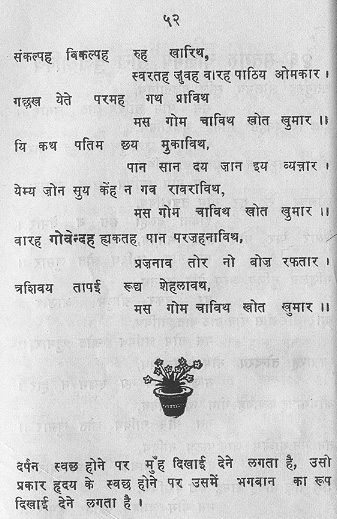 ५२
संकल्पह बिकल्पह रुह खारिथ,
स्वरतह जुवह वारह पाठिय ओमकार ।
गछख येते परमह गथ प्राविथ
मस गोम चाविथ खोत खुमार ।।
यि कथ पतिम छय मुकाविथ,
पान सान दय ज़ान इय व्यन्नार ।
येम्य ज़ोन सुय केंह न गव रावराविथ,
मस गोम चाविथ खोत खुमार ।।
वारह गोवेन्दह ह्यकतह पान परज़हनाविथ,
प्रज़नाव तोर नो वोज़ रफतार ।
त्रशिवय तापई रूद्य शेहलावथ,
मस गोम चाविथ खोत खुमार ।।
दर्पन स्वछ होने पर मुँह दिखाई देने लगता है, उसो
प्रकार हृदय के स्वछ होने पर उसमें भगबान का रूप
दिखाई देने लगता है ।